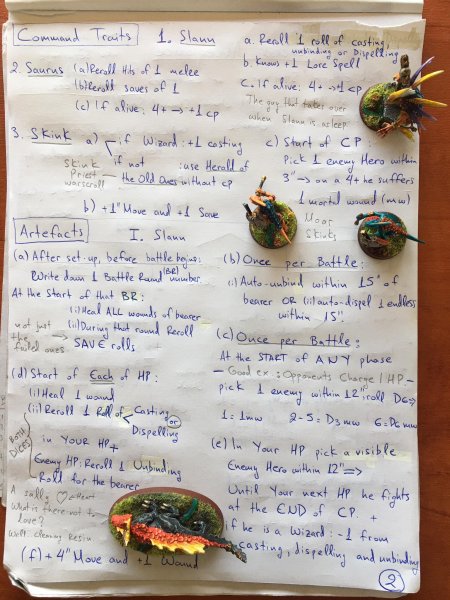 Command Traits
1. Slann
a. Reroll 1 roll of casting, unbinding or Dispelling
b. Know +1 Lore Spell
c. If alive: 4+ → +1 cp
The guy that takes over
when Slann is asleep
2. Saurus (a) Reroll Hits of 1 melee
(b) Reroll saves of 1
(c) If alive: 4+ → +1 cp
3. Skink a) if Wizard: +1 casting
if not : use Herald of
the Old Ones without cp
Skink
Priest
warscroll
b) +1" Move and +1 Save
c) Start of CP:
Pick 1 enemy Hero within
3" → on a 4+ he suffers
1 mortal wound (mw)
Moar
Skinks
Artefacts
I. Slann
(a) After set-up, before battle begins:
Write down 1 Battle Round (BR) number
At the Start of that BR:
(i) Heal ALL wounds of bearer
(ii) During that round Reroll
SAVE rolls
not just
the
failed ones
(b) Once per Battle:
(i) Auto-unbind within 15" of
bearer OR (ii) auto-dispel 1 endless
within 15"
(c) Once per Battle:
At the START of ANY phase
- Good ex.: Opponents Charge / HP -
pick 1 enemy within 12": roll D6 ⇒
1 = 1mw 2-5 = D3 mw 6 = D6 mw
(d) Start of Each of HP:
(i) Heal 1 wound
(ii) Reroll 1 Roll of < Casting or
Dispelling
in YOUR HP +
Enemy HP: Reroll 1 Unbinding
Roll for the bearer
BOTH
DICES
(e) In Your HP pick a visible
Enemy Hero within 12" ⇒
Until Your next HP he fights
at the END of CP. +
if he is a Wizard: -1 from
casting, dispelling and unbinding
A sally ♡ at Heart
What is there not to
love?
Well.. cleaning Resin
(f) +4" Move and +1 Wound
2